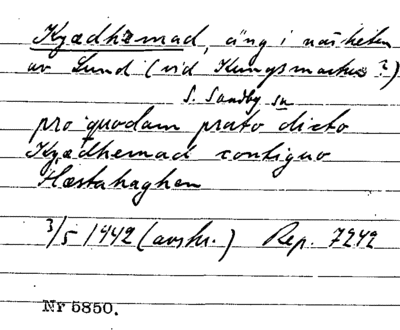 Kyædhemad, äng i närheten
av Lund (vid Kungsmarken ?)
S. Sandby sn
pro quodam prato dicto
Kyædhemad contiguo
Hæstahaghen
3/5 1442 (avskr.) Rep. 7242
Nr 5850.